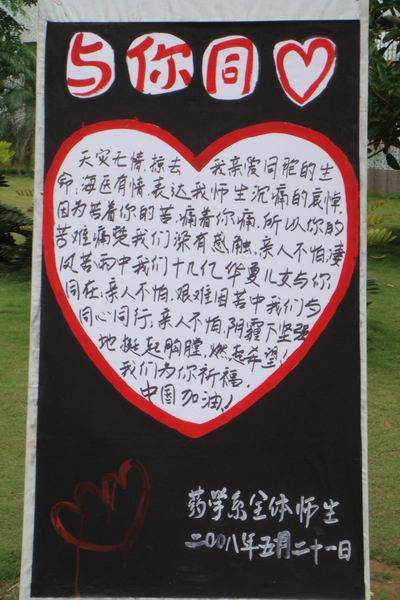 与你同♡
天灾无情,掠去 我亲爱同胞的生
命,海医有情,表达我师生沉痛的哀悼.
因为苦着你的苦,痛着你痛,所以你的
苦难痛楚我们深有感触,亲人不怕,凄
风苦雨中我们十几亿华夏儿女与你
同在;亲人不怕,艰难困苦中我们与
同心同行;亲人不怕,阴霾下坚强
地挺起胸膛,燃起希望!
我们为你祈福,
中国加油!
药学系全体师生
二00八年五月二十一日